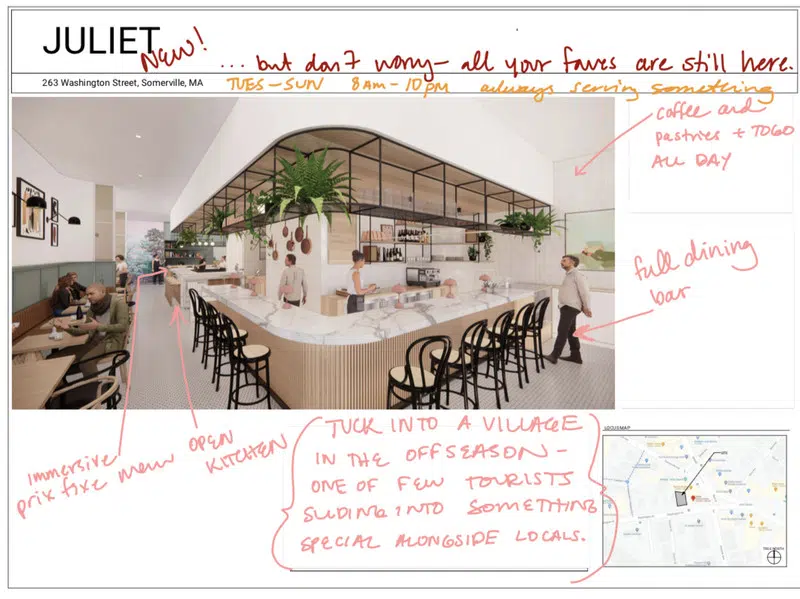 JULIET
NEW!
...but don't worry- all your faves are still here.
263 Washington Street, Somerville, MA
TUES-SUN 8AM-10PM always serving something
coffee and
pastries + TOGO
ALL DAY
full dining
bar
immersive
prix fixe menu
OPEN
KITCHEN
TUCK INTO A VILLAGE
IN THE OFFSEASON -
ONE OF FEW TOURISTS
SLIDING INTO SOMETHING
SPECIAL ALONGSIDE LOCALS.
LOCUS MAP
SITE
TRUE NORTH